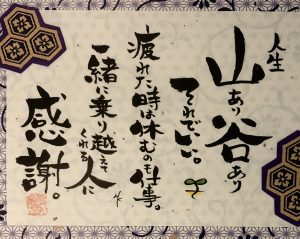 人生
山あり谷あり
それでいい。
疲れた時は休むのも仕事。
一緒に乗り越えてくれる人に
感謝。